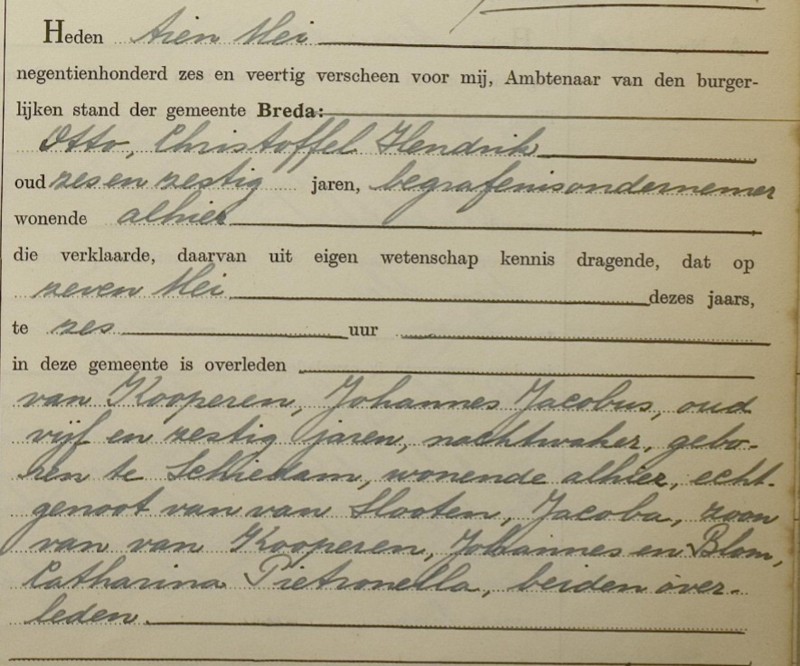 Heden tien Mei
negentienhonderd zes en veertig verscheen voor mij, Ambtenaar van den burger-
lijken stand der gemeente Breda:
Otto, Christoffel Hendrik
oud zes en zestig jaren, begrafenisondernemer
wonende alhier
die verklaarde, daarvan uit eigen wetenschap kennis dragende, dat op
zeven Mei dezes jaars,
te zes uur
in deze gemeente is overleden
van Kooperen, Johannes Jacobus, oud
vijf en zestig jaren, nachtwaker, gebo-
ren te Schiedam, wonende alhier, echt-
genoot van van Slooten, Jacoba, zoon
van van Kooperen, Johannes en Blom,
Catharina Pietronella, beiden over-
leden.